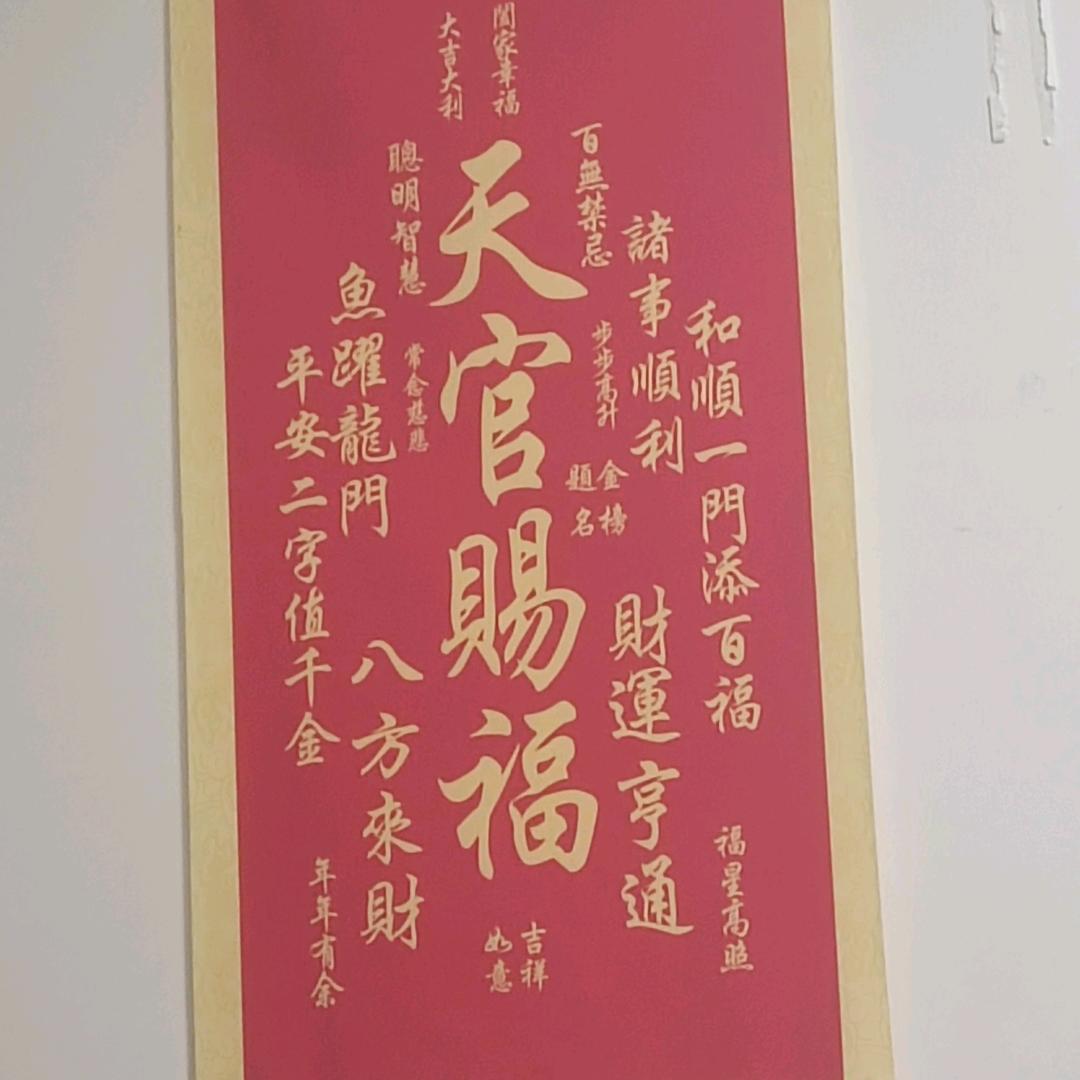 闔家幸福
大吉大利
天官賜福
百無禁忌
諸事順利
和順一門添百福
步步高升
金榜
題名
財運亨通
福星高照
聰明智慧
常念慈悲
魚躍龍門
平安二字值千金
八方來財
年年有余
吉祥
如意